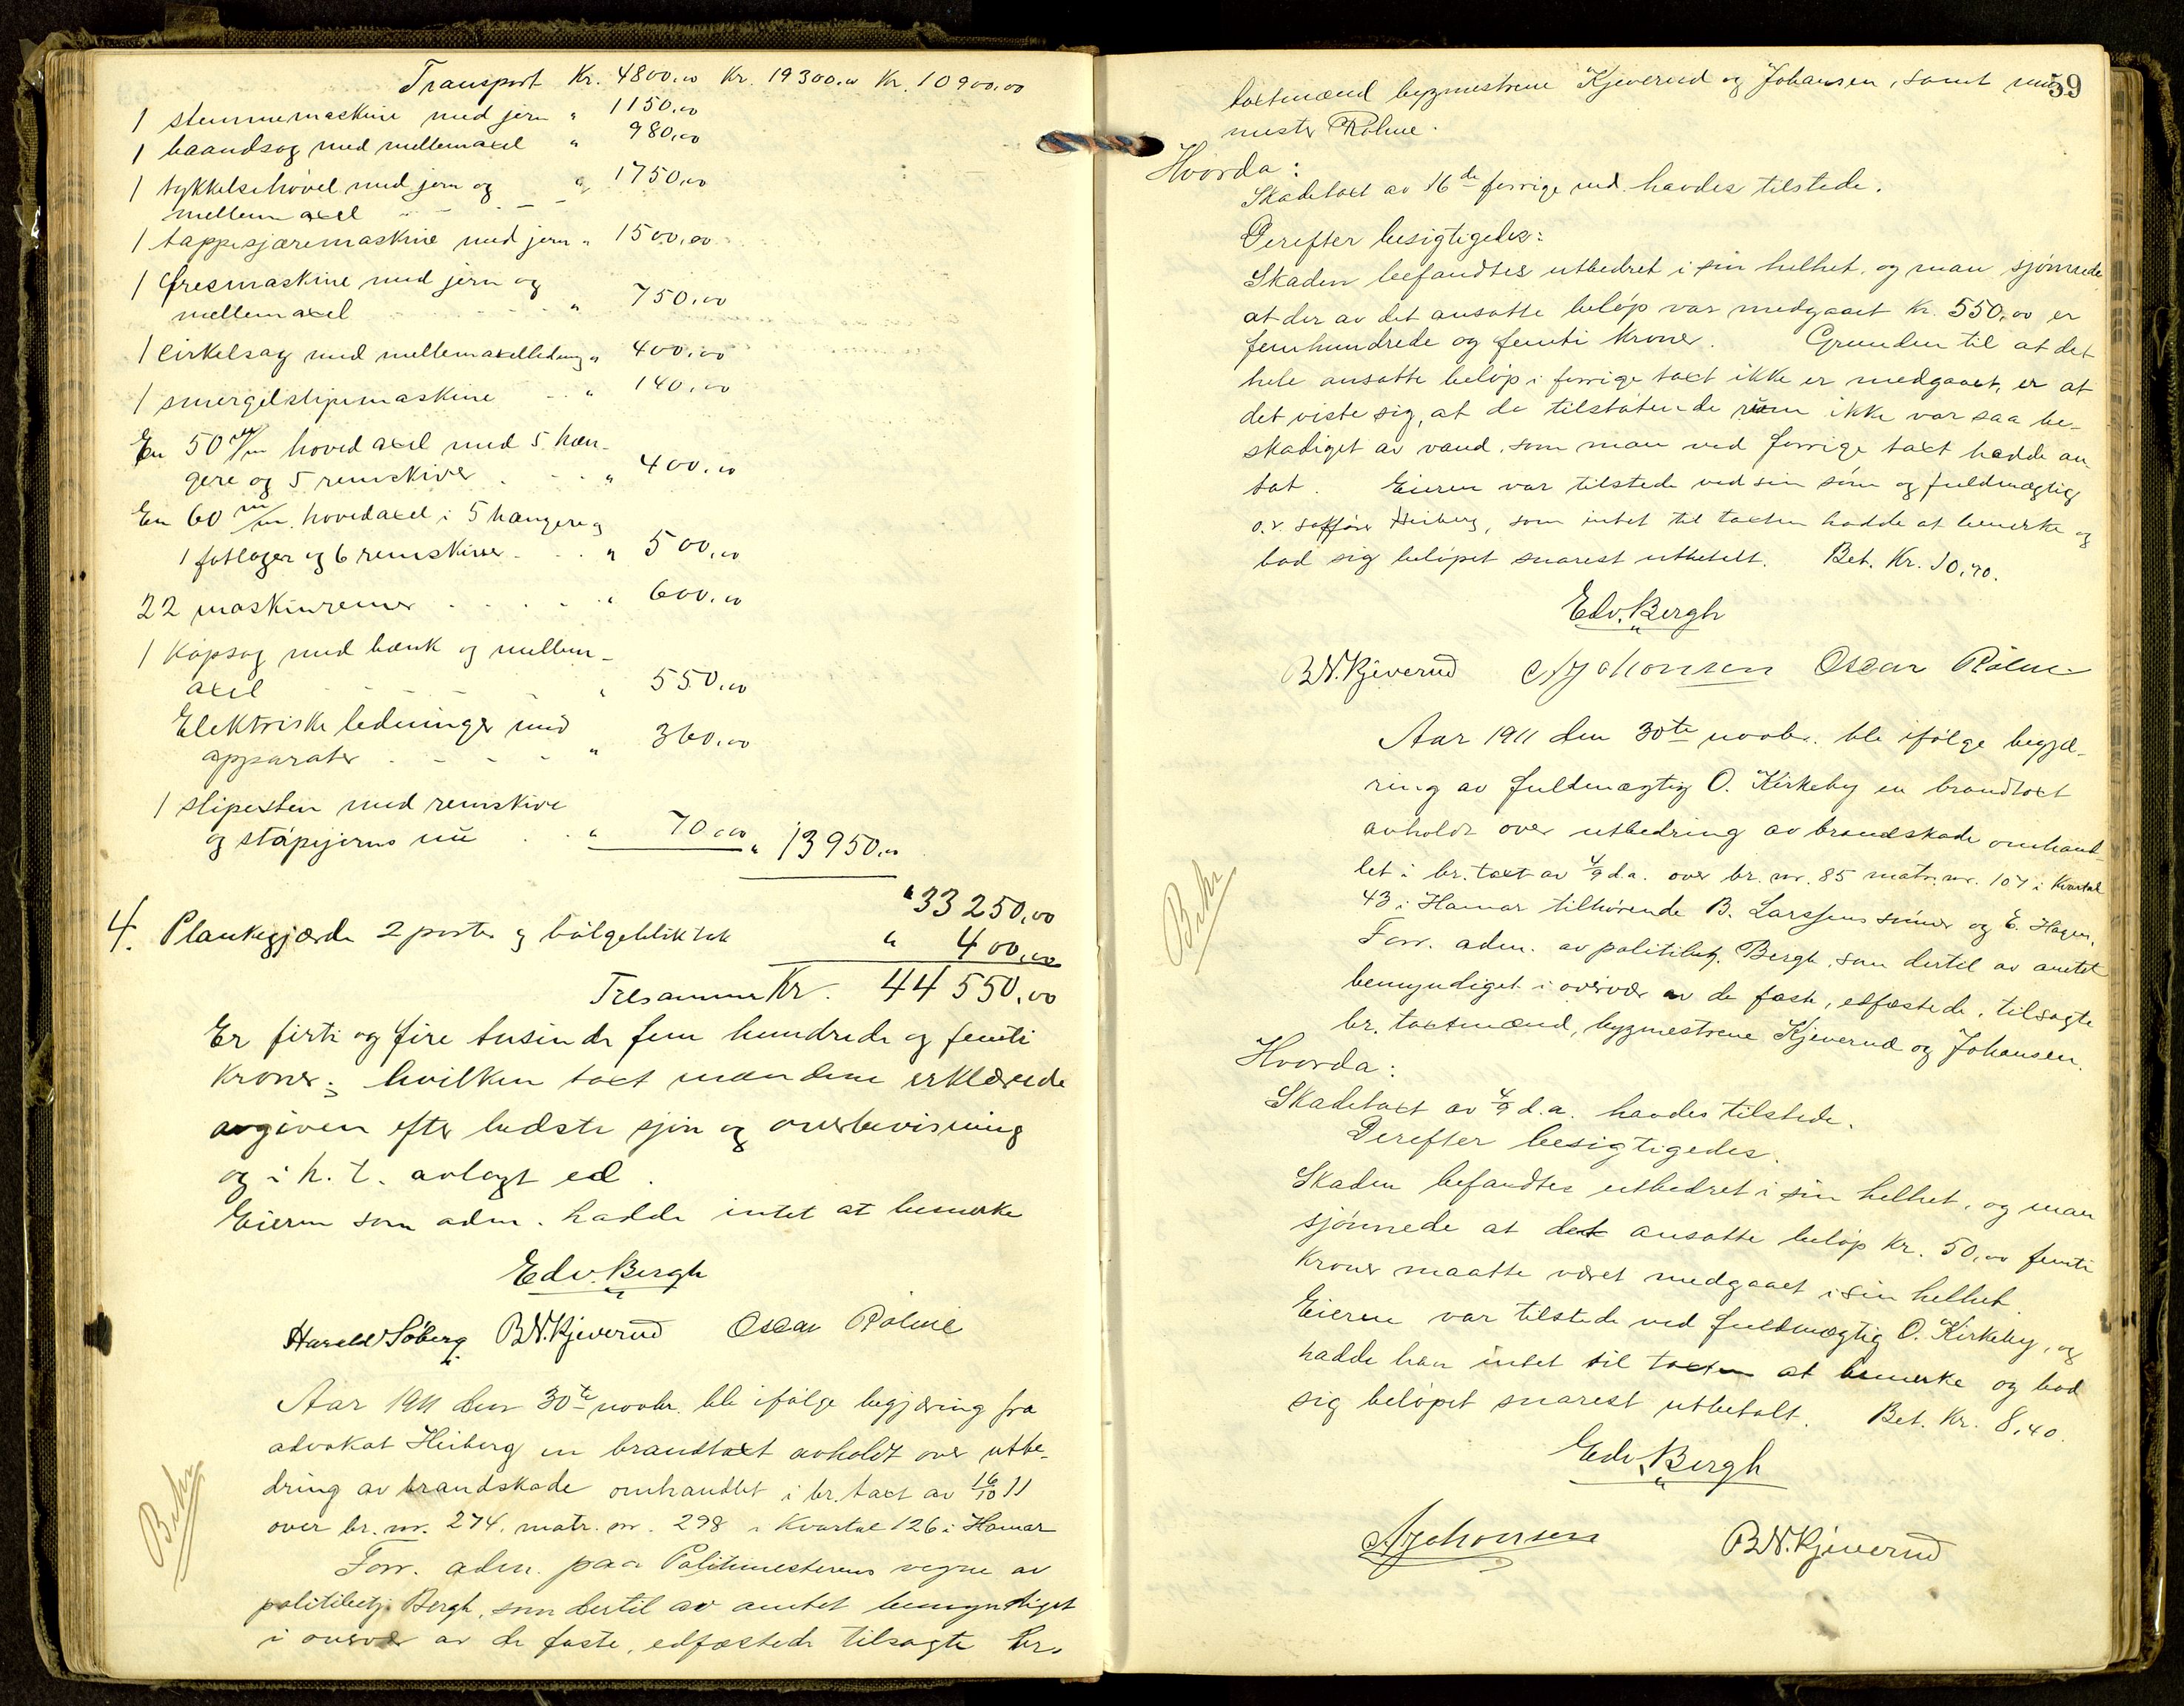 Transport Kr. 4800.00 Kr. 19300.00 Kr. 10900.00
1 stemmemaskine med jern " 1150.00
1 baandsag med mellemaxel " 980.00
1 tykkelsehøvel med jern og " 1750.00
mellemaxel
1 tappesjæremaskine med jern " 1500.00
1 fresmaskine med jern og
mellemaxel " 750.00
1 cirkelsag med mellemaxelledning " 400.00
1 smergelslipemaskine " 140.00
En 50 m/m hovedaxel med 5 hæn-
gere og 5 remskiver " 400.00
En 60 m/m hovedaxel i 5 hængere og
1 fotlager og 6 remskiver " 500.00
22 maskinremer " 600.00
1 Kapsag med bænk og mellem-
axel " 550.00
Elektriske ledninger med
apparater " 360.00
1 slipesten med remskive
og støpejerns " 70.00 " 13950.00
" 33250.00
4. Plankegjærde 2 porte og bølgebliktak " 400.00
Tilsammen Kr. 44550.00
Er firti og fire tusinde fem hundrede og femti
Kroner; hvilken taxt mændene erklærede
avgiven efter bedste sjøn og overbevisning
og i h. t. avlagt ed.
Eieren som adm. hadde intet at bemerke
Edv. Bergh
Harald Søberg B.N. Kjeverud Oscar Rolme
Aar 1911 den 30te novbr. ble ifølge begjæring fra
advokat Heiberg en brandtaxt avholdt over utbe-
dring av brandskade omhandlet i br. taxt av 16/10 11
over br. nr. 274. matr. nr. 298 i Kvartal 126 i Hamar
Forr. adm. paa Politimesterens vegne av
politibetj. Bergh, som dertil av amtet bemyndiget
i overvær av de faste, edfæstede tilsagte br.
59
taxtmænd bygmestrene Kjeverud og Johansen, samt mur
mester Rolme.
Hvorda:
Skadetaxt av 16de forrige md. havdes tilstede.
Derefter besigtigedes:
Skaden befandtes utbedret i sin helhet, og man sjønnede
at der av det ansatte beløp var medgaaet Kr. 550.00 er
femhundrede og femti Kroner. Grunden til at det
hele ansatte beløp i forrige taxt ikke er medgaaet, er at
det viste sig, at de tilstøtende rum ikke var saa be-
skadiget av vand, som man ved forrige taxt hadde an
tat. Eieren var tilstede ved sin søn og fuldmægtig
o.r. sakfører Heiberg, som intet til taxten hadde at bemerke og
bad sig beløpet snarest utbetalt. Bet. Kr. 10,70.
Edv. Bergh
B.N. Kjeverud A Johansen Oscar Rolme
Aar 1911 den 30te novbr. ble ifølge begjæ-
ring av fuldmægtig O. Kirkeby en brandtaxt
avholdt over utbedring av brandskade omhand-
let i br. taxt av 4/9 d.a. over br. nr. 85 matr. nr. 107 i Kvartal
43 i Hamar tilhørende B. Larssens sønner og E. Hagen.
Forr. adm. av politibetj. Bergh, som dertil av amtet
bemyndiget i overvær av de faste, edfæstede, tilsagte
br. taxtmænd, bygmestrene Kjeverud og Johansen.
Hvorda:
Skadetaxt av 4/9 d.a. havdes tilstede.
Derefter besigtigedes.
Skaden befandtes utbedret i sin helhet, og man
sjønnede at det ansatte beløp Kr. 50.00 femti
Kroner maatte været medgaaet i sin helhet.
Eieren var tilstede ved fuldmægtig O. Kirkeby, og
hadde han intet til taxten at bemerke og bad
sig beløpet snarest utbetalt. Bet. Kr. 8,40.
Edv. Bergh
A Johansen B.N. Kjeverud